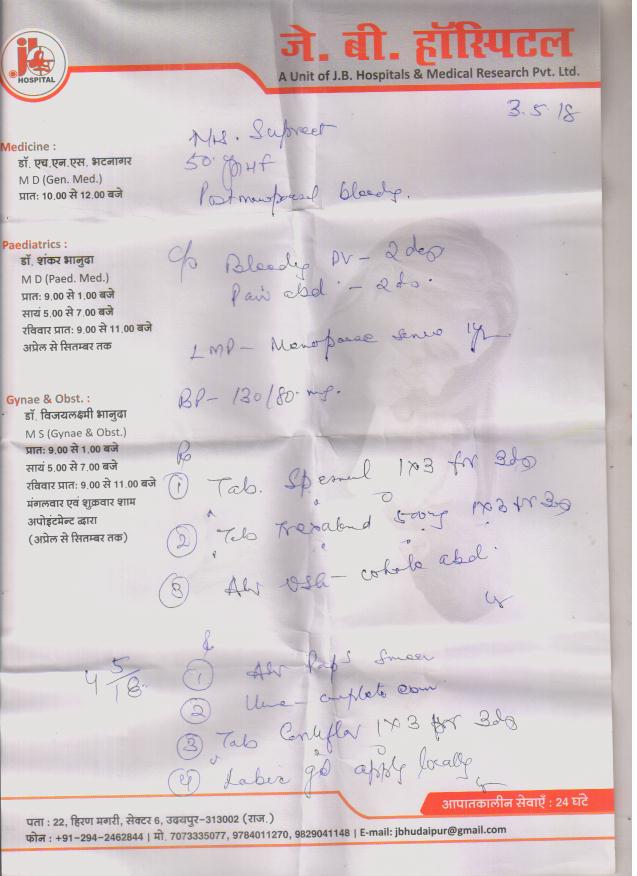 jb
HOSPITAL
जे. बी. हॉस्पिटल
A Unit of J.B. Hospitals & Medical Research Pvt. Ltd.
3.5.18
Mrs. Supreet
50
Postmenopausal bleeding.
c/o Bleeding PV - 2 days
Pain abd - 2 do.
LMP - Menopause since 1 yr
BP - 130/80 mg.
Rx
① Tab. 1x3 for 3 days
② Tab 500mg 1x3 for 3 days
③ Adv USG - whole abd.
4/5/18
① Adv Pap's Smear
② Urine - complete exam
③ Tab 1x3 for 3 days
④ apply locally
Medicine :
डॉ. एच.एन.एस. भटनागर
M D (Gen. Med.)
प्रात: 10.00 से 12.00 बजे
Paediatrics :
डॉ. शंकर भानुढा
M D (Paed. Med.)
प्रात: 9.00 से 1.00 बजे
सायं 5.00 से 7.00 बजे
रविवार प्रात: 9.00 से 11.00 बजे
अप्रेल से सितम्बर तक
Gynae & Obst. :
डॉ. विजयलक्ष्मी भानुढा
M S (Gynae & Obst.)
प्रात: 9.00 से 1.00 बजे
सायं 5.00 से 7.00 बजे
रविवार प्रात: 9.00 से 11.00 बजे
मंगलवार एवं शुक्रवार शाम
अपोइंटमेन्ट द्वारा
(अप्रेल से सितम्बर तक)
आपातकालीन सेवाएँ : 24 घंटे
पता : 22, हिरण मगरी, सेक्टर 6, उदयपुर-313002 (राज.)
फोन : +91-294-2462844 | मो. 7073335077, 9784011270, 9829041148 | E-mail: jbhudaipur@gmail.com